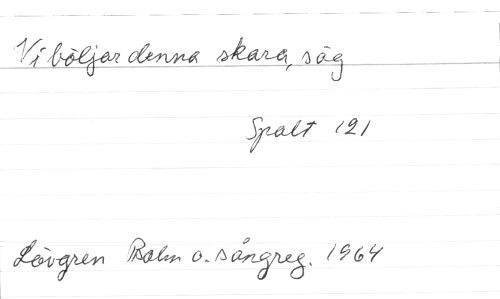 Vi böljar denna skara, säg
Spalt 121
Lövgren Psalm o. sångreg. 1964